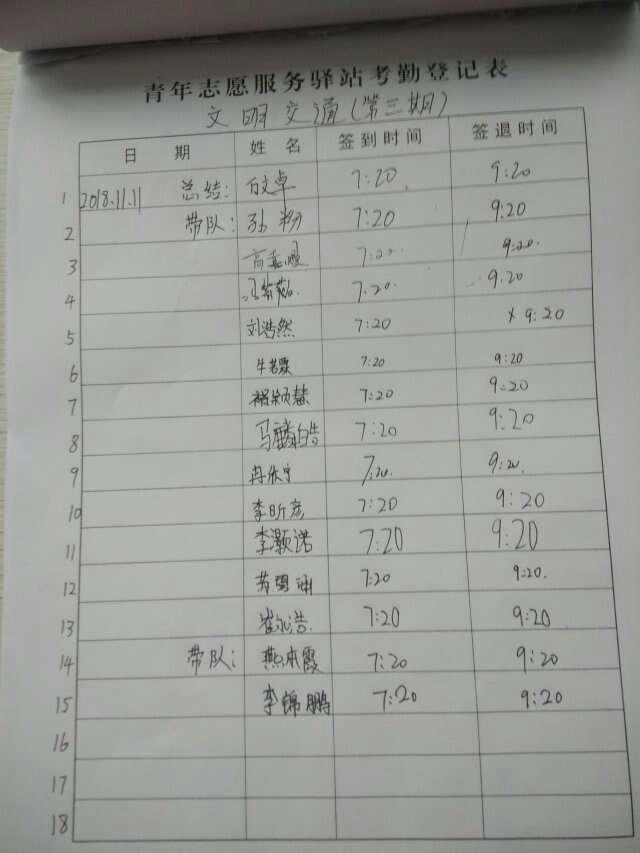 青年志愿服务驿站考勤登记表
文明交通(第三期)
日 期 姓 名 签到时间 签退时间
1 2018.11.11 总结: 白文卓 7:20 9:20
2 带队: 孙粉 7:20 9:20
3 7:20 9:20.
4 7:20. 9.20
5 刘浩然 7:20 x 9:20
6 牛若霖 7:20 9:20
7 褚颖慧 7:20 9:20
8 马麟皓 7:20 9:20
9 冉依宁 7:20. 9:20.
10 李昕彦 7:20 9:20
11 李灏诺 7:20 9:20
12 7:20 9:20.
13 崔永浩. 7:20 9:20
14 带队: 燕本霞 7:20 9:20
15 李锦鹏 7:20 9:20
16
17
18